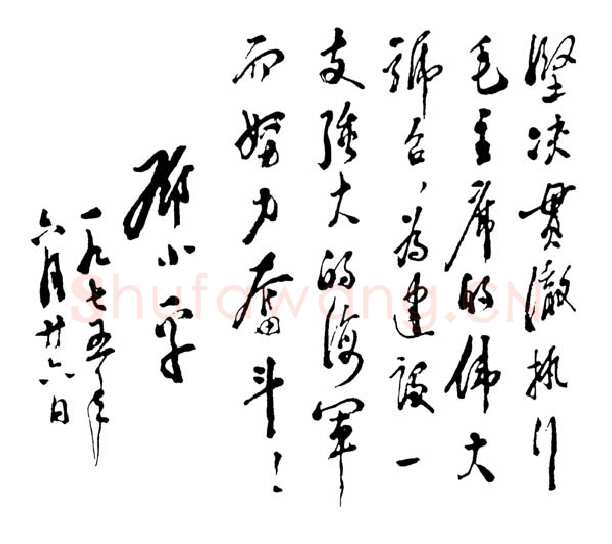 坚决贯澈执行
毛主席的伟大
号召，为建设一
支强大的海军
而努力奋斗！
邓小平
一九七五年
六月廿六日
Shufawang.CN